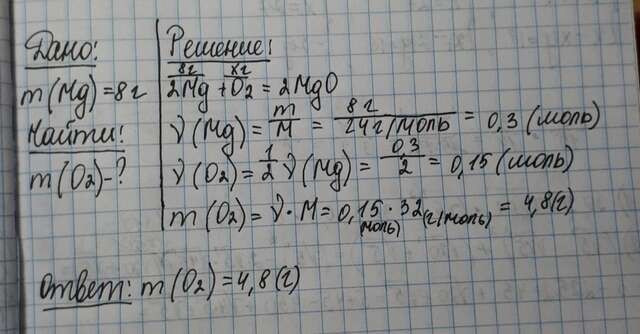 Дано:
m(Mg)=8г
Найти:
m(O₂)-?
Решение:
8г xг
2Mg + O₂ = 2MgO
ν(Mg) = m/M = 8г/24г/моль = 0,3 (моль)
ν(O₂) = 1/2 ν(Mg) = 0,3/2 = 0,15 (моль)
m(O₂) = ν·M = 0,15 (моль) · 32 (г/моль) = 4,8 (г)
Ответ: m(O₂) = 4,8 (г)